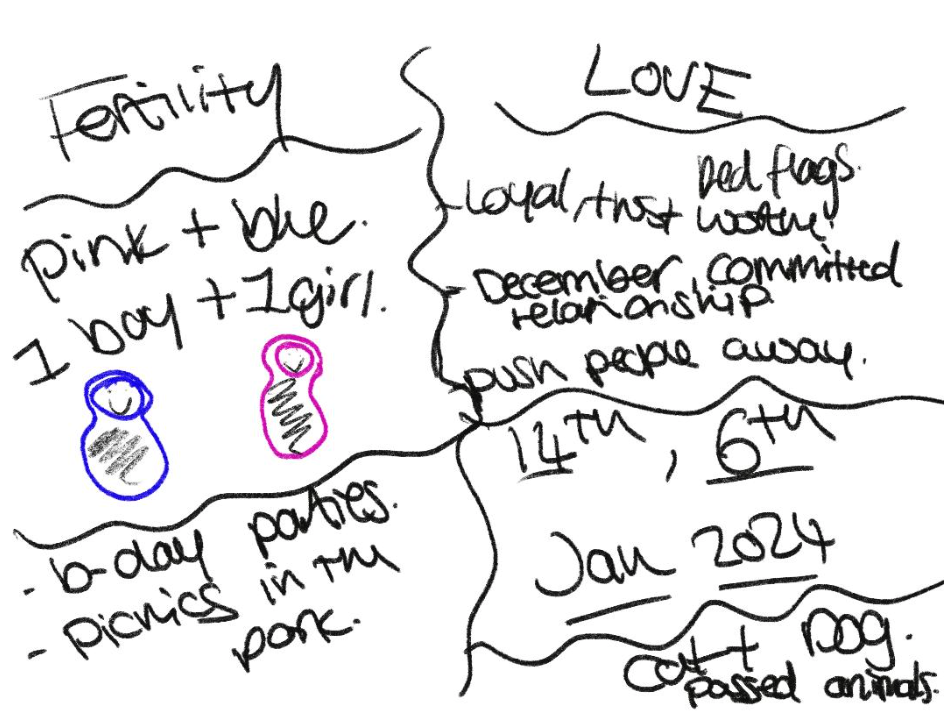 Fertility
pink + blue.
1 boy + 1 girl.
- b-day parties.
- picnics in the
park.
LOVE
Red flags.
- Loyal, trust worthy.
- December, committed
relationship.
push people away.
14th, 6th
Jan 2024
Cat + Dog.
passed animals.